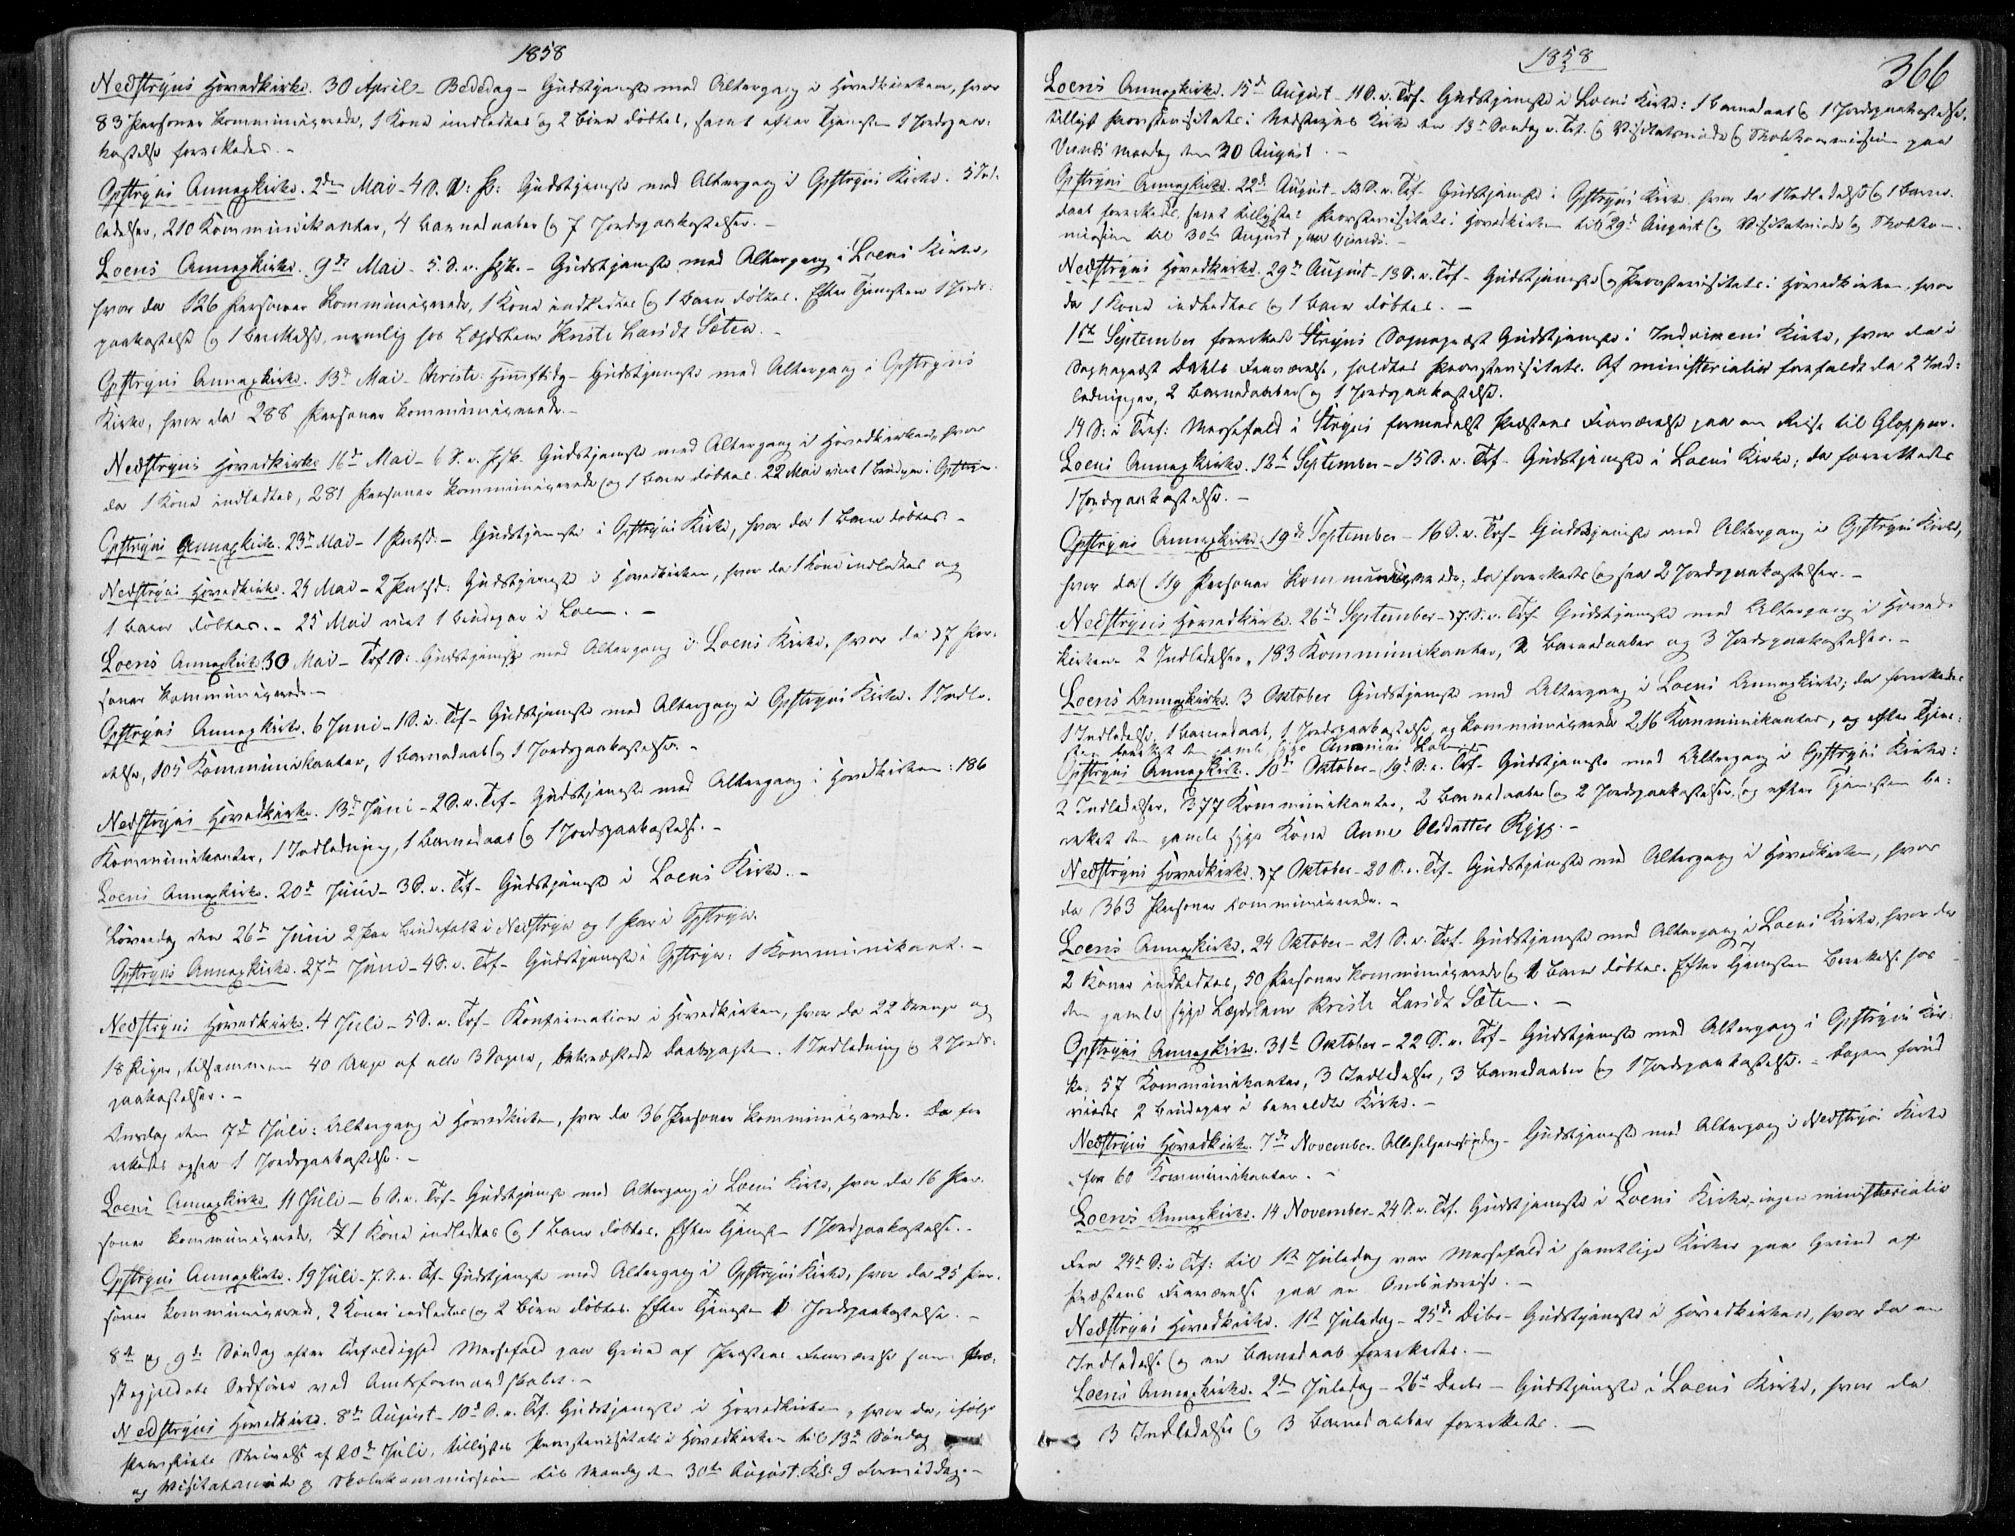 1858
Nedstryns Hovedkirke. 30 April - Bededag - Gudstjeneste med Altergang i Hovedkirken, hvor
83 Personer kommunicerede, 1 Kone indledtes og 2 Børn døbtes, samt efter Tjenesten 1 Jordpaa-
kastelse forrettedes. -
Opstryns Annexkirke. 2den Mai - 4 S. e: P: Gudstjeneste med Altergang i Opstryns Kirke. 5 Ind-
ledelser, 210 Kommunikanter, 4 Barnedaaber og 7 Jordpaakastelser. -
Loens Annexkirke. 9de Mai - 5. S. e. Psk. - Gudstjeneste med Altergang i Loens Kirke,
hvor da 126 Personer kommunicerede, 1 Kone indledtes og 1 Barn døbtes. Efter Tjenesten 1 Jord-
paakastelse og 1 Berettelse, nemlig hos Lægdslem Kristi Larsdt Sæten. -
Opstryns Annexkirke. 13de Mai - Christi Himmelfdg - Gudstjeneste med Altergang i Opstryns
Kirke, hvor da 288 Personer kommunicerede. -
Nedstryns Hovedkirke 16de Mai - 6 S. e. Psk. Gudstjeneste med Altergang i Hovedkirken, hvor
da 1 Kone indledtes, 281 Personer kommunicerede og 1 Barn døbtes. 22 Mai viet 1 Brudepar i Opstryn.
Opstryns Annexkirke. 23de Mai - 1 Pintsd. - Gudstjeneste i Opstryns Kirke, hvor da 1 Barn døbtes. -
Nedstryns Hovedkirke. 24 Mai - 2 Pintsd: Gudstjeneste i Hovedkirken, hvor da 1 Kone indledtes og
1 Barn døbtes. - 25 Mai viet 1 Brudepar i Loen. -
Loens Annexkirke 30 Mai - Tref. S: Gudstjeneste med Altergang i Loens Kirke, hvor da 57 Per-
soner kommunicerede. -
Opstryns Annexkirke. 6 Juni - 1 S. e. Tref - Gudstjeneste med Altergang i Opstryns Kirke. 1 Indle-
delse, 105 Kommunikanter, 1 Barnedaab og 1 Jordpaakastelse. -
Nedstryns Hovedkirke. 13de Juni - 2 S. e. Tref - Gudstjeneste med Altergang i Hovedkirken: 186
Kommunikanter, 1 Indledning, 1 Barnedaab og 1 Jordpaakastelse. -
Loens Annexkirke. 20de Juni - 3 S. e. Tref - Gudstjeneste i Loens Kirke. -
Løverdag den 26de Juni 2 Par Brudefolk i Nedstryn og 1 Par i Opstryn.
Opstryns Annexkirke. 27de Juni - 4 S. e. Tref - Gudstjeneste i Opstryn: 1 Kommunikant. -
Nedstryns Hovedkirke. 4 Juli - 5 S. e. Tref - Konfirmation i Hovedkirken, hvor da 22 Drenge og
18 Piger, tilsammen 40 Unge af alle 3 Sogne, bekræftede Daabspagten. 1 Indledning og 2 Jords-
paakastelser. -
Onsdag den 7de Juli: Altergang i Hovedkirken, hvor da 36 Personer kommunicerede. Da for-
rettedes ogsaa 1 Jordpaakastelse. -
Loens Annexkirke. 11 Juli - 6 S. e. Tref - Gudstjeneste med Altergang i Loens Kirke, hvor da 16 Per-
soner kommunicerede, 1 Kone indledtes og 1 Barn døbtes. Efter Tjenest. 1 Jordpaakastelse. -
Opstryns Annexkirke. 19 Juli - 7. S. e. Tref - Gudstjeneste med Altergang i Opstryns Kirke, hvor da 25 Per-
soner kommunicerede, 2 Koner indledtes og 2 Børn døbtes. Efter Tjenesten Jordpaakastelse. -
8de og 9de Søndag efter Trefoldighed Messefald paa Grund af Præstens Fraværelse som Præ-
stegjeldets Ordfører ved Amtsformandskabet. -
Nedstryns Hovedkirke. 8de August - 10de S. e. Tref. Gudstjeneste i Hovedkirken, hvor da, ifølge
Skrivelse af 20de Juli, tillystes Provstevisitats i Hovedkirken til 13de Søndag
og Visitatsmøde og Skolekommission til Mandag den 30te August. Kl: 9 Formiddag. -
1858
366
Loens Annexkirke. 15de August - 11 S. e. Tref - Gudstjeneste i Loens Kirke: 1 Barnedaab og 1 Jordpaakastelse.
tillyst Provstevisitats i Nedstryns Kirke den 13de Søndag e. Tref. og Visitatsmøde og Skolekommission paa
Vinds Mandag den 30 August. -
Opstryns Annexkirke. 22de August - 12 S. e. Tref - Gudstjeneste i Opstryns Kirke hvor da 1 Indledelse og 1 Barne-
daab forrettedes, samt tillystes Provstevisitats i Hovedkirken til 29de August og Visitatsmøde og Skolekom-
mission til 30te August paa Vinds. -
Nedstryns Hovedkirke. 29de August - 13 S. e. Tref - Gudstjeneste og Provstevisitats i Hovedkirken, hvor
da 1 Kone indledtes og 1 Barn døbtes. -
1ste September forrettede Stryns Sognepræst Gudstjeneste i Indvikens Kirke, hvor da i
Sognepræst Dahls Fraværelse, holdtes Provstevisitats. Af ministerialia forefaldt da 2 Ind-
ledninger, 2 Barnedaaber og 1 Jordpaakastelse.
14 S: e Tref: Messefald i Stryns formedelst Præstens Fraværelse paa en Reise til Gloppen.
Loens Annexkirke. 12te September - 15 S. e. Tref - Gudstjeneste i Loens Kirke; da forrettedes
1 Jordpaakastelse. -
Opstryns Annexkirke. 19de September - 16 S. e. Tref - Gudstjeneste med Altergang i Opstryns Kirke,
hvor da 119 Personer kommunicerede; da forrettedes ogsaa 2 Jordpaakastelser. -
Nedstryns Hovedkirke. 26de September - 17. S. e. Tref - Gudstjeneste med Altergang i Hoved-
kirken. 2 Indledelser, 183 Kommunikanter, 2 Barnedaaber og 3 Jordpaakastelser. -
Loens Annexkirke. 3 Oktober Gudstjeneste med Altergang i Loens Annexkirke; da forrettedes
1 Indledelse, 1 Barnedaab, 1 Jordpaakastelse, og kommunicerede 216 Kommunikanter, og efter Tjene-
sten berettet den gamle syge
Opstryns Annexkirke. 10de Oktober - 19de S. e. Tref - Gudstjeneste med Altergang i Opstryns Kirke:
2 Indledelser, 377 Kommunikanter, 2 Barnedaaber og 2 Jordpaakastelser, og efter Tjenesten be-
rettet den gamle syge Kone Anne Olsdatter Rygg. -
Nedstryns Hovedkirke. 17 Oktober - 20 S. e. Tref - Gudstjeneste med Altergang i Hovedkirken, hvor
da 363 Personer kommunicerede. -
Loens Annexkirke. 24 Oktober - 21 S. e. Tref - Gudstjeneste med Altergang i Loens Kirke, hvor da
2 Koner indledtes, 50 Personer kommunicerede og 2 Børn døbtes. Efter Tjenesten Berettelse hos
den gamle syge Lægdslem Kristi Larsdt Sæten. -
Opstryns Annexkirke. 31te Oktober - 22 S. e. Tref - Gudstjeneste med Altergang i Opstryns Kir-
ke. 57 Kommunikanter, 3 Indledelser, 3 Barnedaaber og 1 Jordpaakastelse. - Dagen forud
viedes 2 Brudepar i bemeldte Kirke. -
Nedstryns Hovedkirke. 7de November. Allehelgenssøndag - Gudstjeneste med Altergang i Nedstryns Kirke
for 60 Kommunikanter. -
Loens Annexkirke. 14 November - 24 S. e. Tref. Gudstjeneste i Loens Kirke, ingen ministerialia
Fra 24de S: e Tref: til 1ste Juledag var Messefald i samtlige Kirker paa Grund af
Præstens Fraværelse paa en Ombudsreise. -
Nedstryns Hovedkirke. 1ste Juledag - 25de Dcbr - Gudstjeneste i Hovedkirken, hvor da en
Indledelse og en Barnedaab forrettedes. -
Loens Annexkirke. 2den Juledag - 26de Decbr - Gudstjeneste i Loens Kirke, hvor da
3 Indledelser og 3 Barnedaaber forrettedes. -